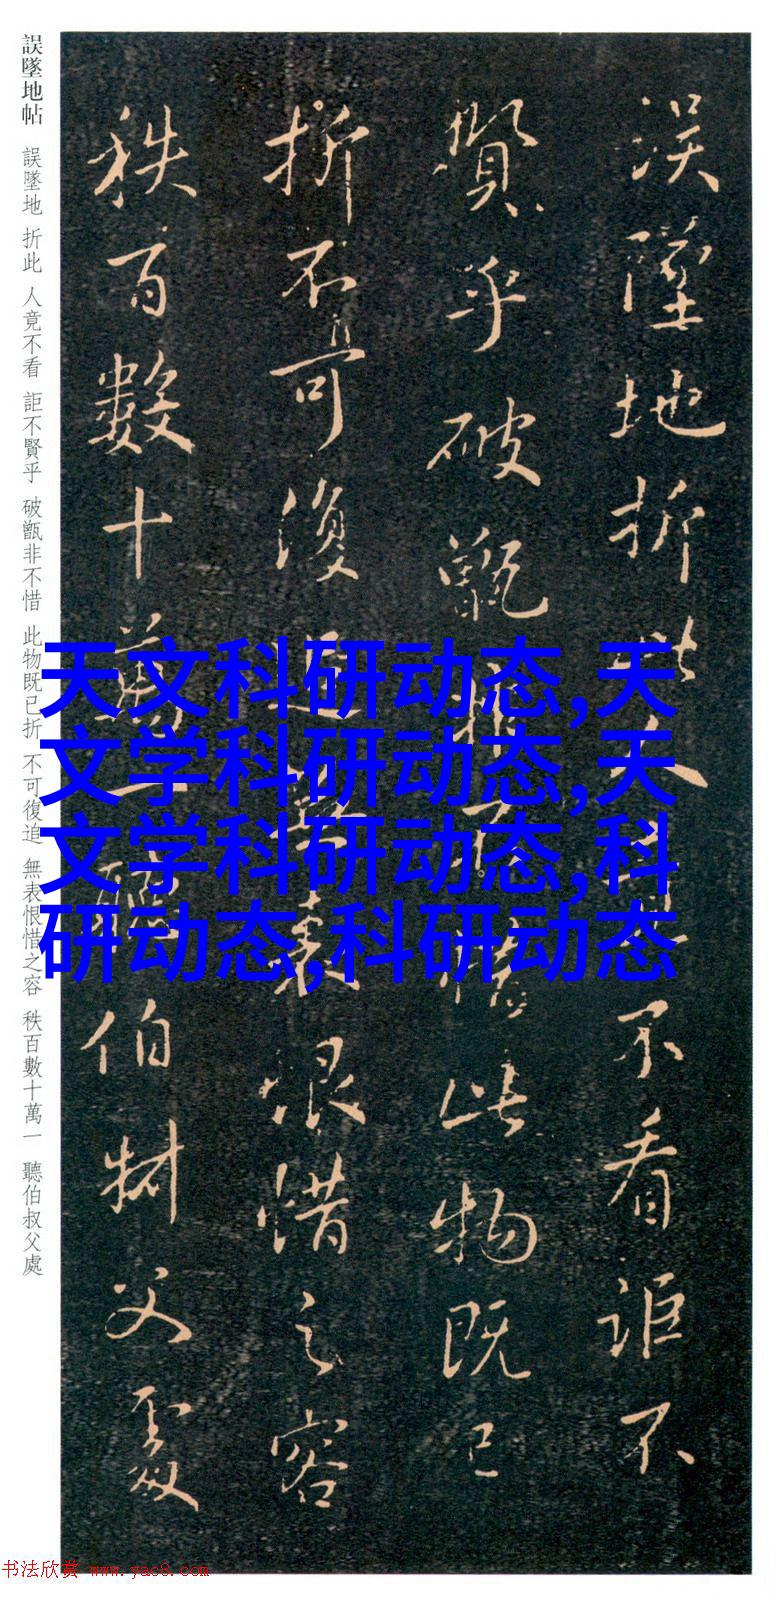 誤墜地折此人竟不看詎不
賢乎破甑非不惜此物既已
折不可復追無表恨惜之容
秩百數十萬一聽伯叔父處
誤墜地帖 誤墜地 折此 人竟不看 詎不賢乎 破甑非不惜 此物既已折 不可復追 無表恨惜之容 秩百數十萬一 聽伯叔父處
天文科研动态,天
文学科研动态,天
文学科研动态,科
研动态,科研动态
书法欣赏 www.yac8.com